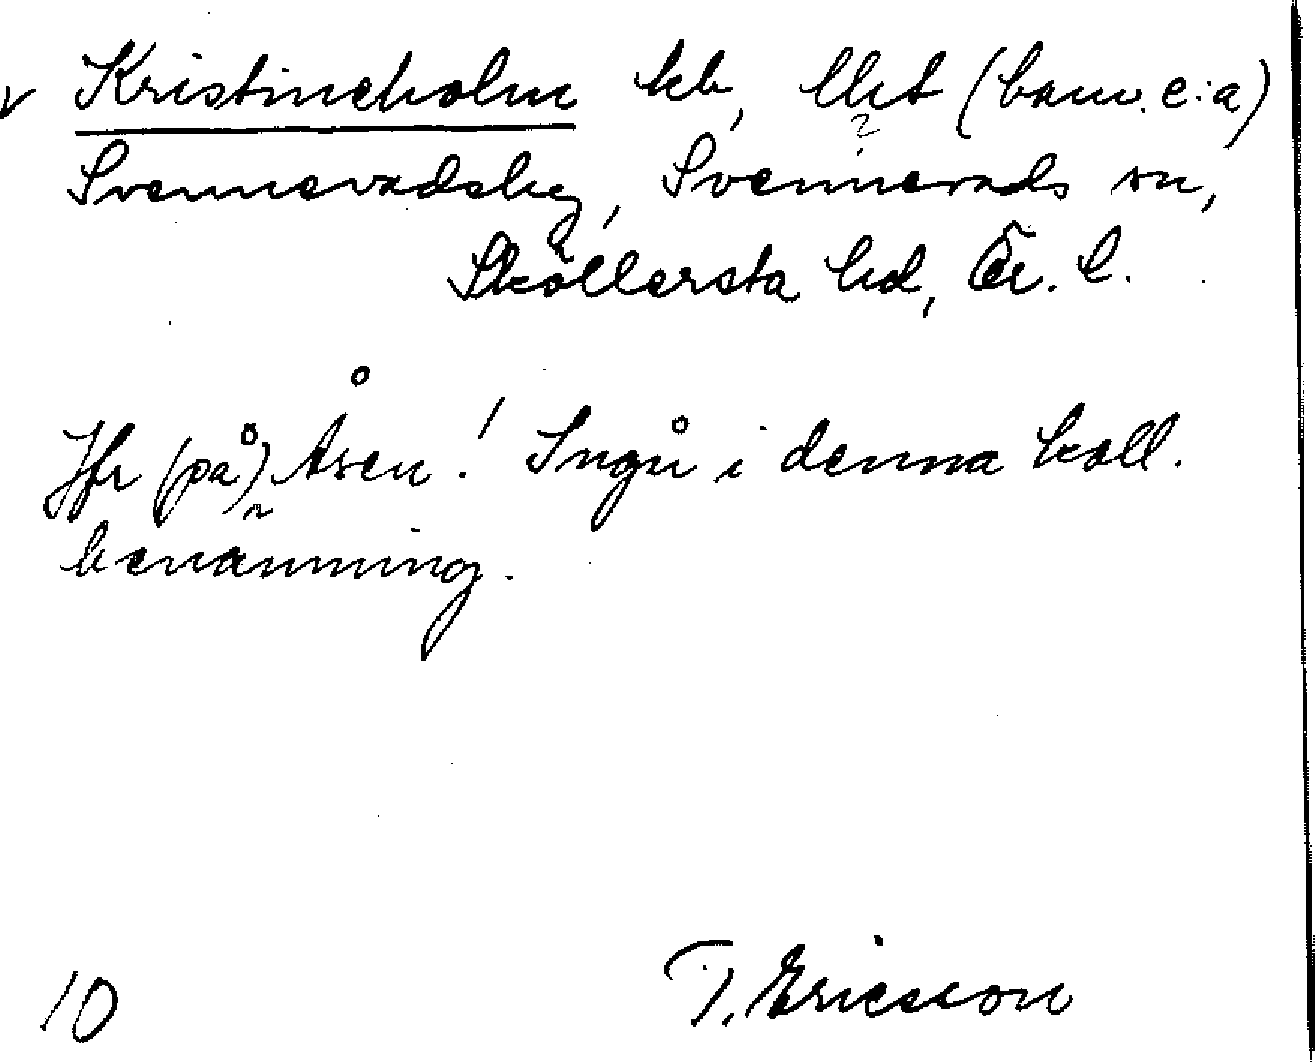 v Kristineholm hb, lht (banv. e:a)
Svennevadsby, Svennevads sn,
Sköllersta hd, Ör. l.
Jfr (på) Åsen! Ingå i denna koll.
benämning.
10 T. Ericsson